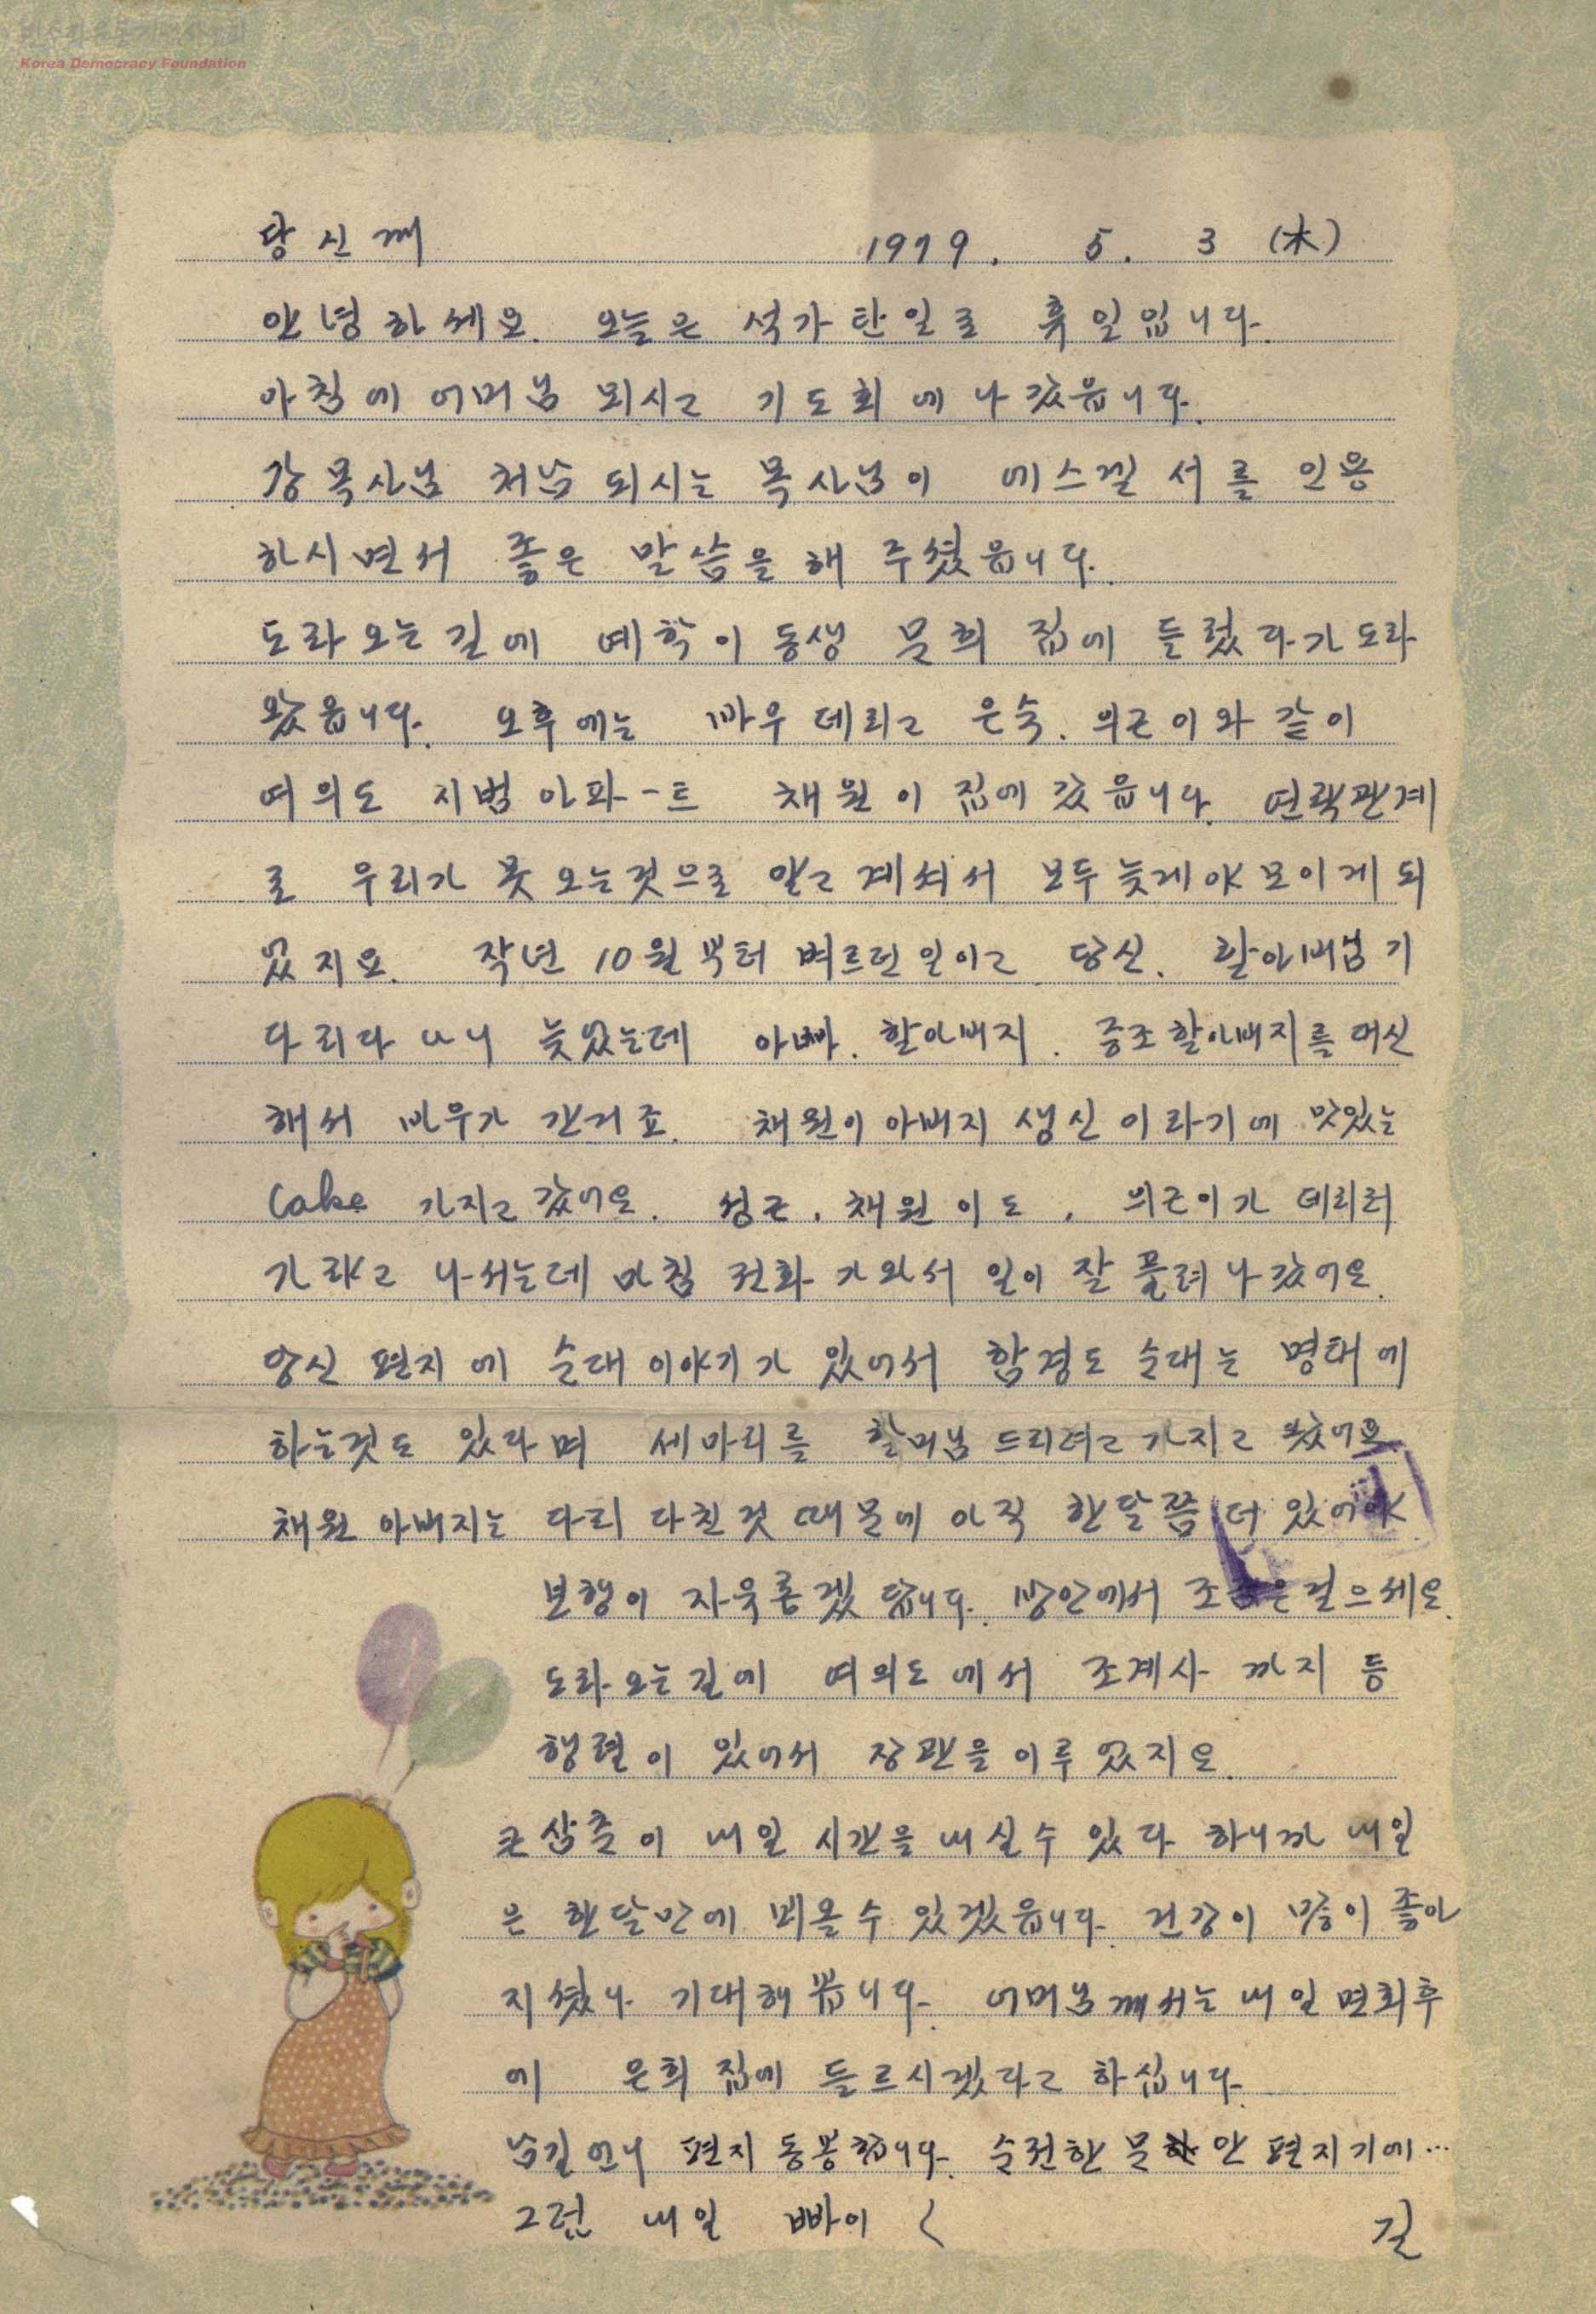 민주화운동기념사업회
Korea Democracy Foundation
당신께 1979. 5. 3 (木)
안녕하세요. 오늘은 석가탄일로 휴일입니다.
아침에 어머님 뫼시고 기도회에 나갔읍니다.
강목사님 처남 되시는 목사님이 에스겔서를 인용
하시면서 좋은 말씀을 해 주셨읍니다.
도라오는길에 예학이 동생 문희 집에 들렀다가 도라
왔읍니다. 오후에는 바우 데리고 은숙. 의근이와 같이
여의도 시범아파-트 채원이 집에 갔읍니다. 연락관계
로 우리가 못 오는것으로 알고 계셔서 모두 늦게야 모이게 되
었지요. 작년 10월부터 벼르던 일이고 당신. 할아버님 기
다리다 나니 늦었는데 아빠. 할아버지. 증조할아버지를 대신
해서 바우가 간거죠. 채원이 아버지 생신이라기에 맛있는
Cake 가지고 갔어요. 성근. 채원이도, 의근이가 데리러
가랴고 나서는데 마침 전화가 와서 일이 잘 풀려나갔어요.
당신 편지에 순대 이야기가 있어서 함경도 순대는 명태에
하는것도 있다며 세마리를 할머님 드리려고 가지고 왔어요.
채원 아버지는 다리 다친것 때문에 아직 한달쯤 더 있어야
보행이 자유롭겠답니다. 방안에서 조금은 걸으세요.
도라오는길에 여의도에서 조계사까지 등
행렬이 있어서 장관을 이루었지요.
큰삼촌이 내일 시간을 내실수 있다 하니까 내일
은 한달만에 뵈올수 있겠읍니다. 건강이 많이 좋아
지셨나 기대해 봅니다. 어머님께서는 내일 면회후
에 은희 집에 들르시겠다고 하십니다.
남길언니 편지 동봉합니다. 순전한 문안 편지기에…
그럼 내일 빠이〈 길